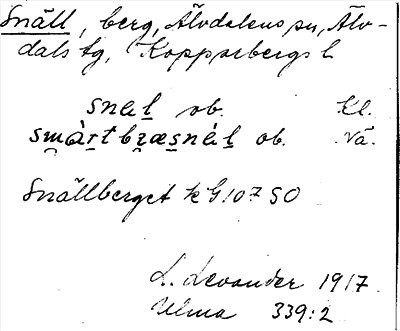 Snäll, berg, Älvdalens sn, Älv-
dals tg, Kopparbergs l
snɛl̠ ob. Kl.
ob. Vå.
Snällberget k G107 SO
L. Levander 1917
Ulma 339:2